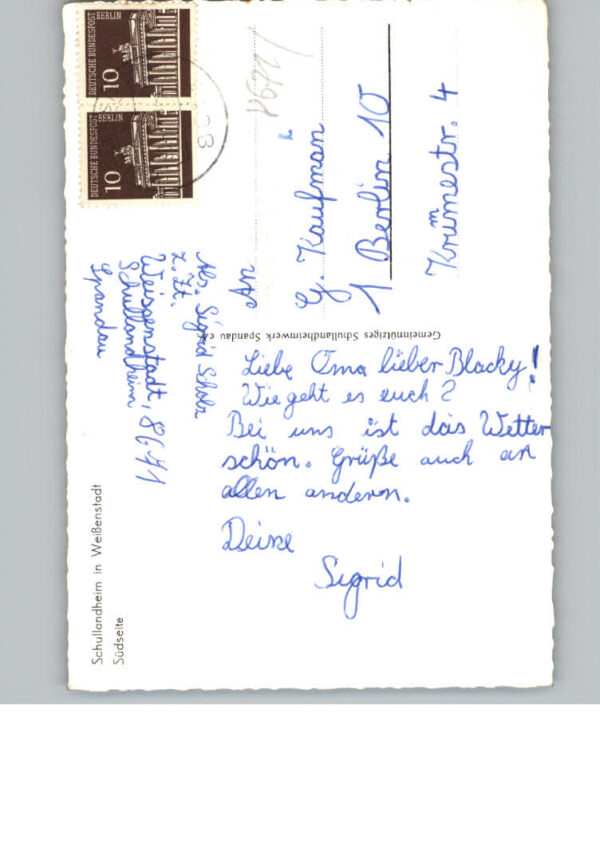 DEUTSCHE BUNDESPOST
BERLIN
10
DEUTSCHE BUNDESPOST
BERLIN
10
8671
An
G. Kaufman
1 Berlin 10
Krumestr. 4
m
Gemeinnütziges Schullandheimwerk Spandau e.V.
Abs. Sigrid
z. Zt.
Weissenstadt, 8671
Schullandheim
Spandau
Liebe Oma lieber Blacky!
Wie geht es euch?
Bei uns ist das Wetter
schön. Grüße auch an
allen anderen.
Deine
Sigrid
Schullandheim in Weißenstadt
Südseite